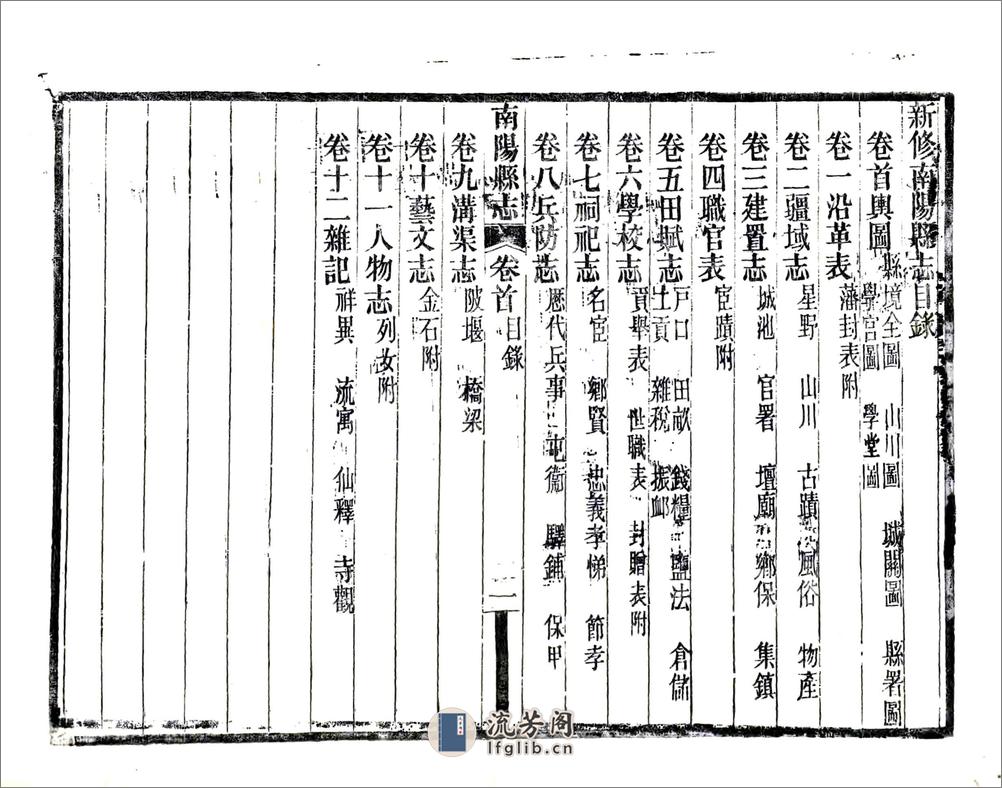 新修南陽縣志目錄
卷首輿圖 縣境全圖 山川圖 城關圖 縣署圖
學宮圖 學堂圖
卷一沿革表 藩封表附
卷二疆域志 星野 山川 古蹟 風俗 物產
卷三建置志 城池 官署 壇廟 鄉保 集鎮
卷四職官表 宦蹟附
卷五田賦志 戶口 田畝 錢糧 鹽法 倉儲
土貢 雜稅 振卹
卷六學校志 貢舉表 世職表 封贈表附
卷七祠祀志 名宦 鄉賢 忠義孝悌 節孝
卷八兵防志 歷代兵事 屯衞 驛鋪 保甲
南陽縣志 卷首 目錄 二
卷九溝渠志 陂堰 橋梁
卷十藝文志 金石附
卷十一人物志 列女附
卷十二雜記 祥異 流寓 仙釋 寺觀
流芳阁
lfglib.cn